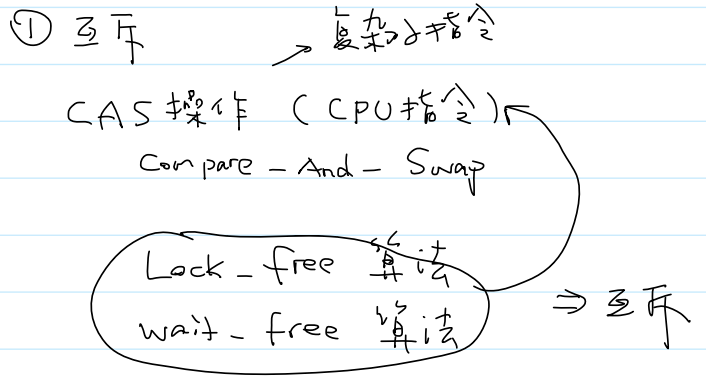 ① 互斥
复杂指令
CAS操作 (CPU指令)
Compare-And-Swap
Lock-free 算法
wait-free 算法
⇒ 互斥